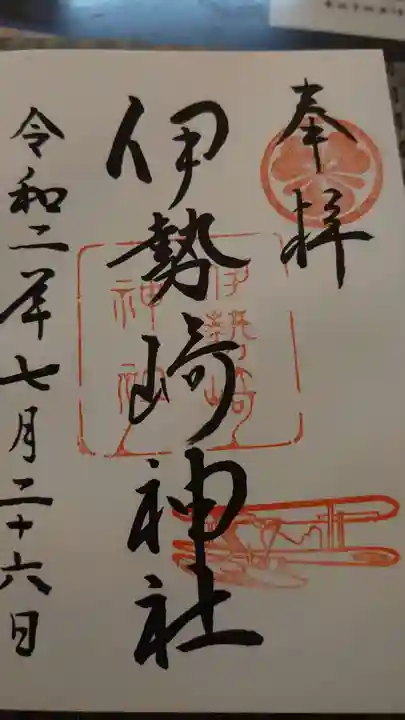 奉拝
伊勢崎神社
伊勢崎
神社
令和二年七月二十六日